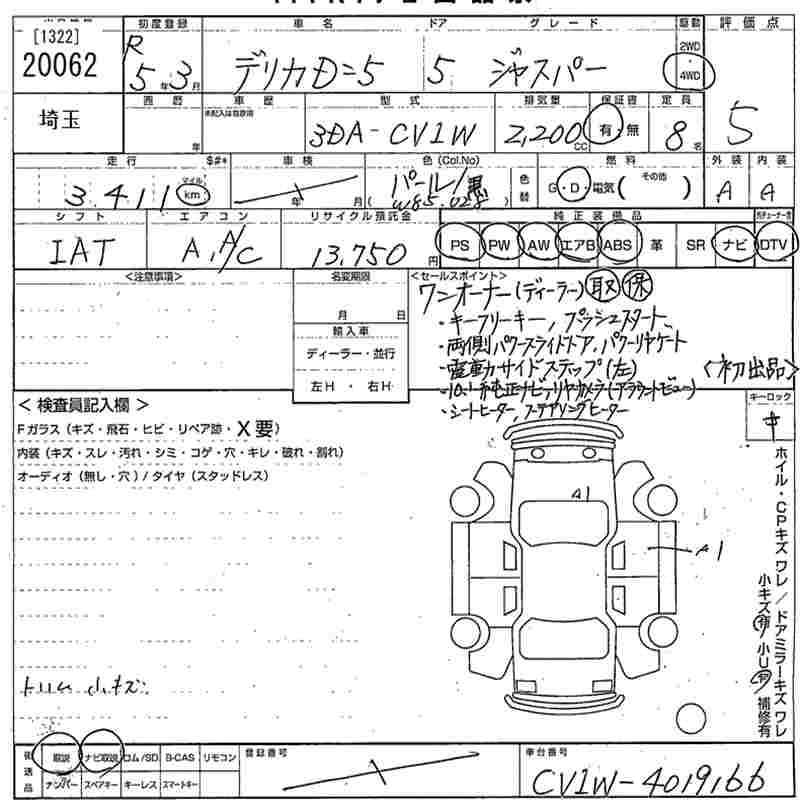 初度登録 車名 ドア グレード 駆動 評価点
[1322]
20062
R 5年3月 デリカD=5 5 ジャスパー 2WD 4WD
埼玉
西暦 年 車歴 型式 排気量 保証書 定員
3DA-CV1W 2,200CC 有・無 8名 5
走行 $#* 車検 色(Col.No) 燃料 外装 内装
3,411 マイル km 年 月 パール/黒 色替 G・D・電気( その他 ) A A
シフト エアコン リサイクル預託金 純正装備品
IAT A,A/C 13,750円 PS PW AW エアB ABS 革 SR ナビ DTV
<注意事項> 名変期限 <セールスポイント>
月 日
輸入車
ディーラー・並行
左H・右H
ワンオーナー(ディーラー) 取 保
・キーフリーキー、プッシュスタート
・両側パワースライドドア、パワーリヤゲート
・電動サイドステップ(左)
・10.1インチ純正ナビ、リヤカメラ(アラウンドビュー)
・シートヒーター、ステアリングヒーター
<初出品>
キーロック
<検査員記入欄>
Fガラス(キズ・飛石・ヒビ・リペア跡・X要)
内装(キズ・スレ・汚れ・シミ・コゲ・穴・キレ・破れ・割れ)
オーディオ(無し・穴)/タイヤ(スタッドレス)
A1
A1
ホイル・CPキズワレ/ドアミラーキズワレ
小キズ有 小U有 補修有
トリム小キズ
後送品 取説 ナビ取説 ロム/SD B-CAS リモコン
ナンバー スペアキー キーレス スマートキー
登録番号
車台番号
CV1W-4019166